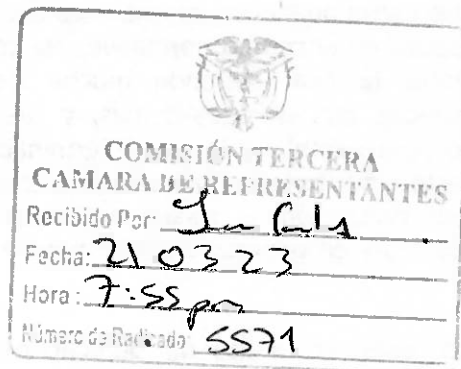 COMISIÓN TERCERA
CAMARA DE REPRESENTANTES
Recibido Por:
Fecha: 21 03 23
Hora: 7:55 pm
Número de Radicado: 5571